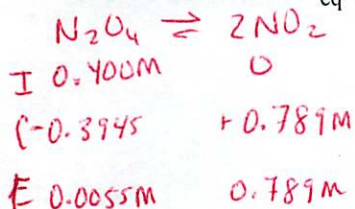 eq
N₂O₄ ⇌ 2NO₂
I 0.400M 0
C -0.3945 +0.789M
E 0.0055M 0.789M